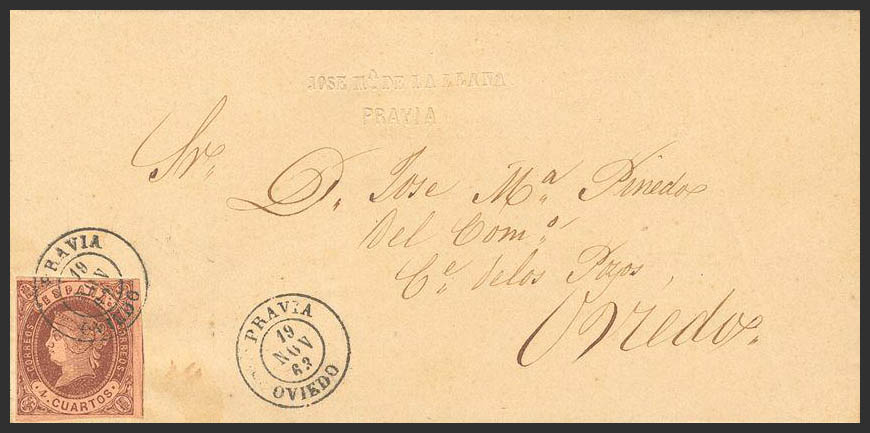 JOSE Mª DE LA LLANA
PRAVIA
Sr.
D. Jose Mª Pinedo
Del Comº
Ce. de los Pozos,
Oviedo.
PRAVIA
19
NOV
63
OVIEDO
PRAVIA
19
NOV
63
OVIEDO
ESPAÑA
CORREOS
CORREOS
4 CUARTOS